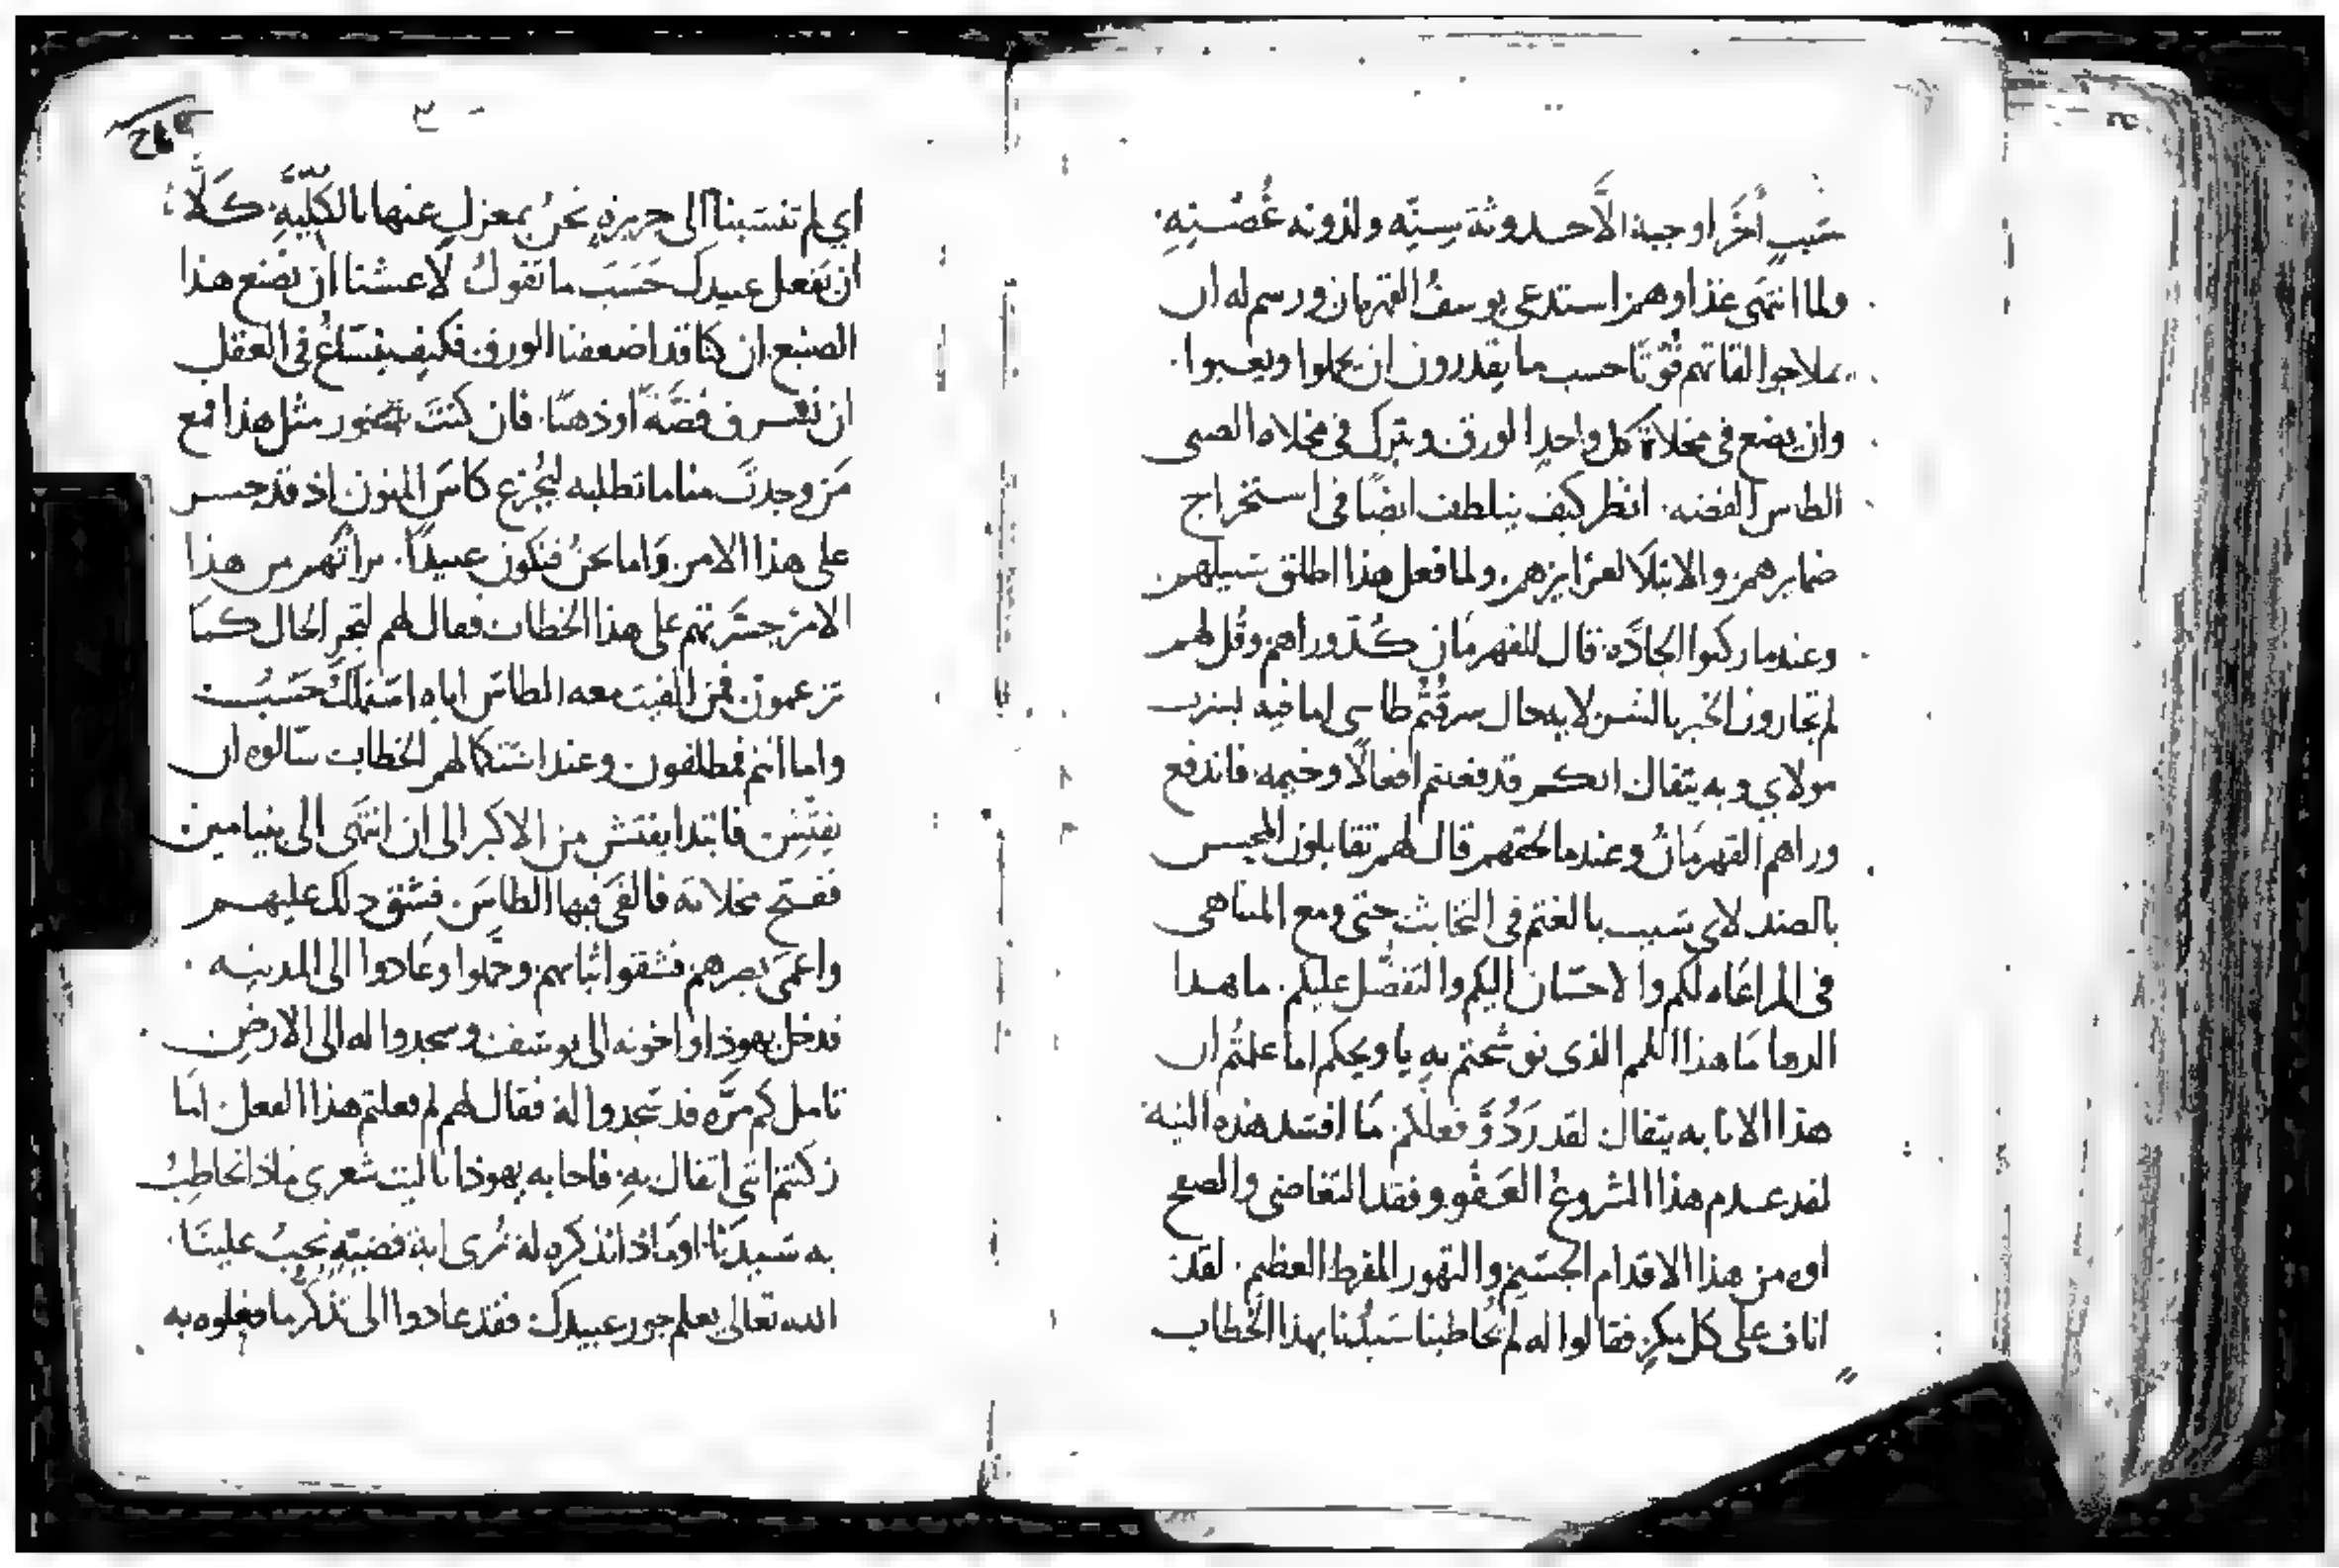 سبب أخر اوجبه الاحدوثة سيئه ولدونه غصنيه
ولما انتهى غذاوهم استدعى يوسف القهرمان ورسم له ان
يملا جوالقاتهم قوتا حسب ما يقدرون ان يحملوا ويعببوا
وان يضع في مخلاة كل واحد الورق ويترك في مخلاه الصبى
الطاس الفضه انظر كيف يتلطف ايضا في استخراج
ضمايرهم والابتلا لغرايزهم ولما فعل هذا اطلق سبيلهم
وعندما ركبوا الجاده قال للقهرمان كد وراهم وقل لهم
لم تجازون الخير بالشر لايه حال سرقتم طاسى اما فيه يشرب
مولاي وبه يتفال انكم قد فعلتم افعالا وخيمه فاندفع
وراهم القهرمان وعندما لحقهم قال لهم تقابلون الجميل
بالضد لاي سبب بالغتم في التخابث حتى ومع المتناهى
في المراعاه لكم والاحسان اليكم والتفضل عليكم ما هذا
الدها ما هذا اللم الذى توشحتم به يا ويحكم اما علمتم ان
هذا الانا به يتفال لقد ردو فعلكم ما افسد هذه النية
لقد عدم هذا المشروع العفو وفقد التغاضى والصفح
اوه من هذا الاقدام الجسيم والتهور المفرط العظيم لقد
اناف على كل مكر فقالوا له لم تخاطبنا سيدنا بهذا الخطاب
اي لم تنسبنا الى جريرة نحن بمعزل عنها بالكلية كلا
ان يفعل عبيدك حسب ما تقول لا عشنا ان نصنع هذا
الصنيع ان كنا قد اضعفنا الورق فكيف ينساغ في العقل
ان نسرق فضة او ذهبا فان كنت مثل هذا فمع
من وجدت منا ما تطلبه ليجرع كاس المنون اذ قد جسر
على هذا الامر واما نحن فنكون عبيدا براتهم من هذا
الامر جسرتهم على هذا الخطاب فقال لهم لتجر الحال كما
تزعمون فمن الفيت معه الطاس اياه استملك حسب
واما انتم فمطلقون وعند اشتكالهم الخطاب سالوه ان
يفتش فابتدا يفتش من الاكبر الى ان انتهى الى بنيامين
ففتح مخلاته فالفى فيها الطاس فشق ذلك عليهم
واعمى بصرهم فشقوا ثيابهم وحملوا وعادوا الى المدينه
فدخل يهوذا واخوته الى يوسف وسجدوا له الى الارض
تامل كم مره قد سجدوا له فقال لهم لم فعلتم هذا الفعل اما
زكنتم انى اتفال به فاجابه يهوذا يا ليت شعرى ماذا نخاطب
به سيدنا او ماذا نذكره له ترى اية قضيه نجيب علينا
الله تعالى يعلم جور عبيدك فقد عادوا الى تذكر ما فعلوه به